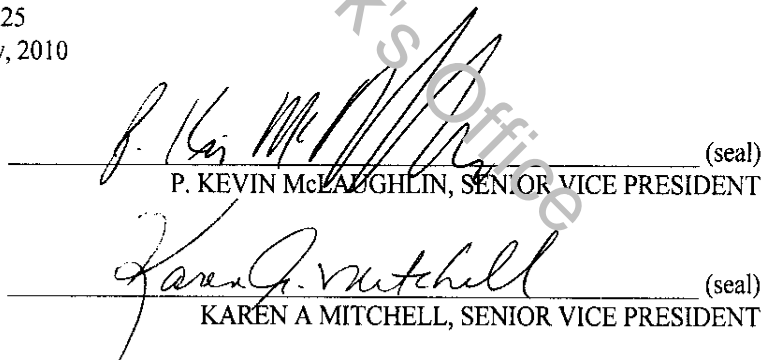 25
, 2010
k's Office
P. Kevin Mc
(seal)
P. KEVIN McLAUGHLIN, SENIOR VICE PRESIDENT
Karen A. Mitchell
(seal)
KAREN A MITCHELL, SENIOR VICE PRESIDENT